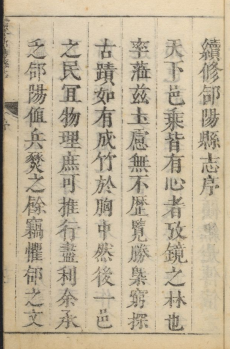 續修郃陽縣志序
天下邑乘皆有心者攷鏡之林也
率蒞茲土慮無不歷覽勝槩窮探
古蹟如有成竹於胸中然後一邑
之民宜物理庶可推行盡利余承
乏郃陽值兵燹之餘竊懼郃之文